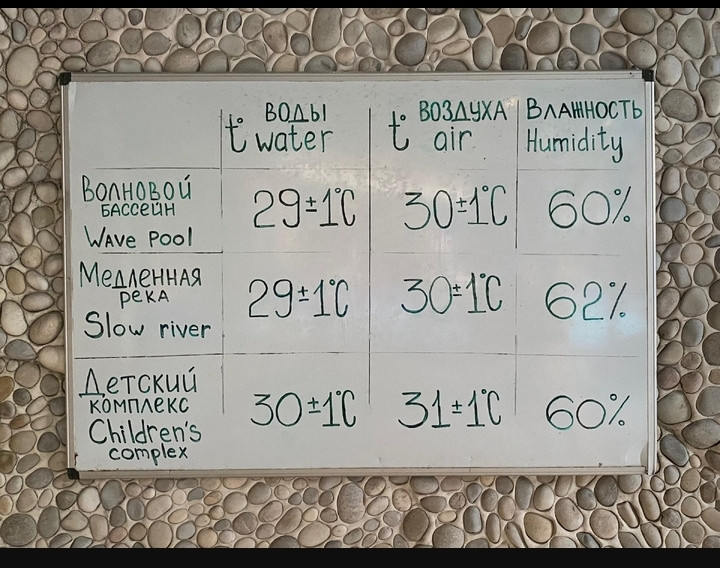 t° ВОДЫ water
t° ВОЗДУХА air
ВЛАЖНОСТЬ
Humidity
ВОЛНОВОЙ
БАССЕЙН
WAVE POOL
29±1°C 30±1°C 60%
МЕДЛЕННАЯ
РЕКА
Slow river
29±1°C 30±1°C 62%
ДЕТСКИЙ
КОМПЛЕКС
Children's
complex
30±1°C 31±1°C 60%